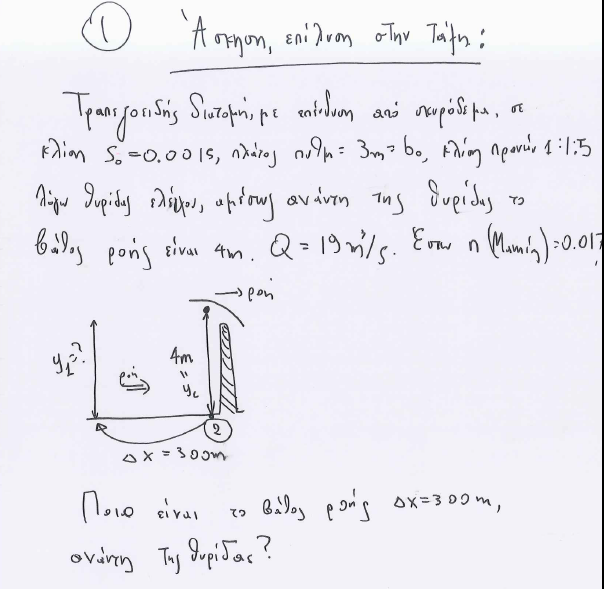 1 Άσκηση, επίλυση στην Τάξη:
Τραπεζοειδής διατομή, με επένδυση από σκυρόδεμα, σε
κλίση S₀=0.0015, πλάτος πυθμ= 3m= b₀, κλίση πρανών 1:1.5
Λόγω θυρίδας ελέγχου, αμέσως ανάντη της θυρίδας το
βάθος ροής είναι 4m. Q = 19 m³/s. Έστω n (Manning)=0.017
→ ροή
y₁=?
ροή
4m
"
y₂
2
Δx = 300m
Ποιο είναι το βάθος ροής Δx=300m,
ανάντη της θυρίδας?